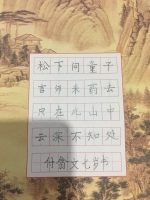 松下问童子
言师采药去
只在此山中
云深不知处
付 文七岁书